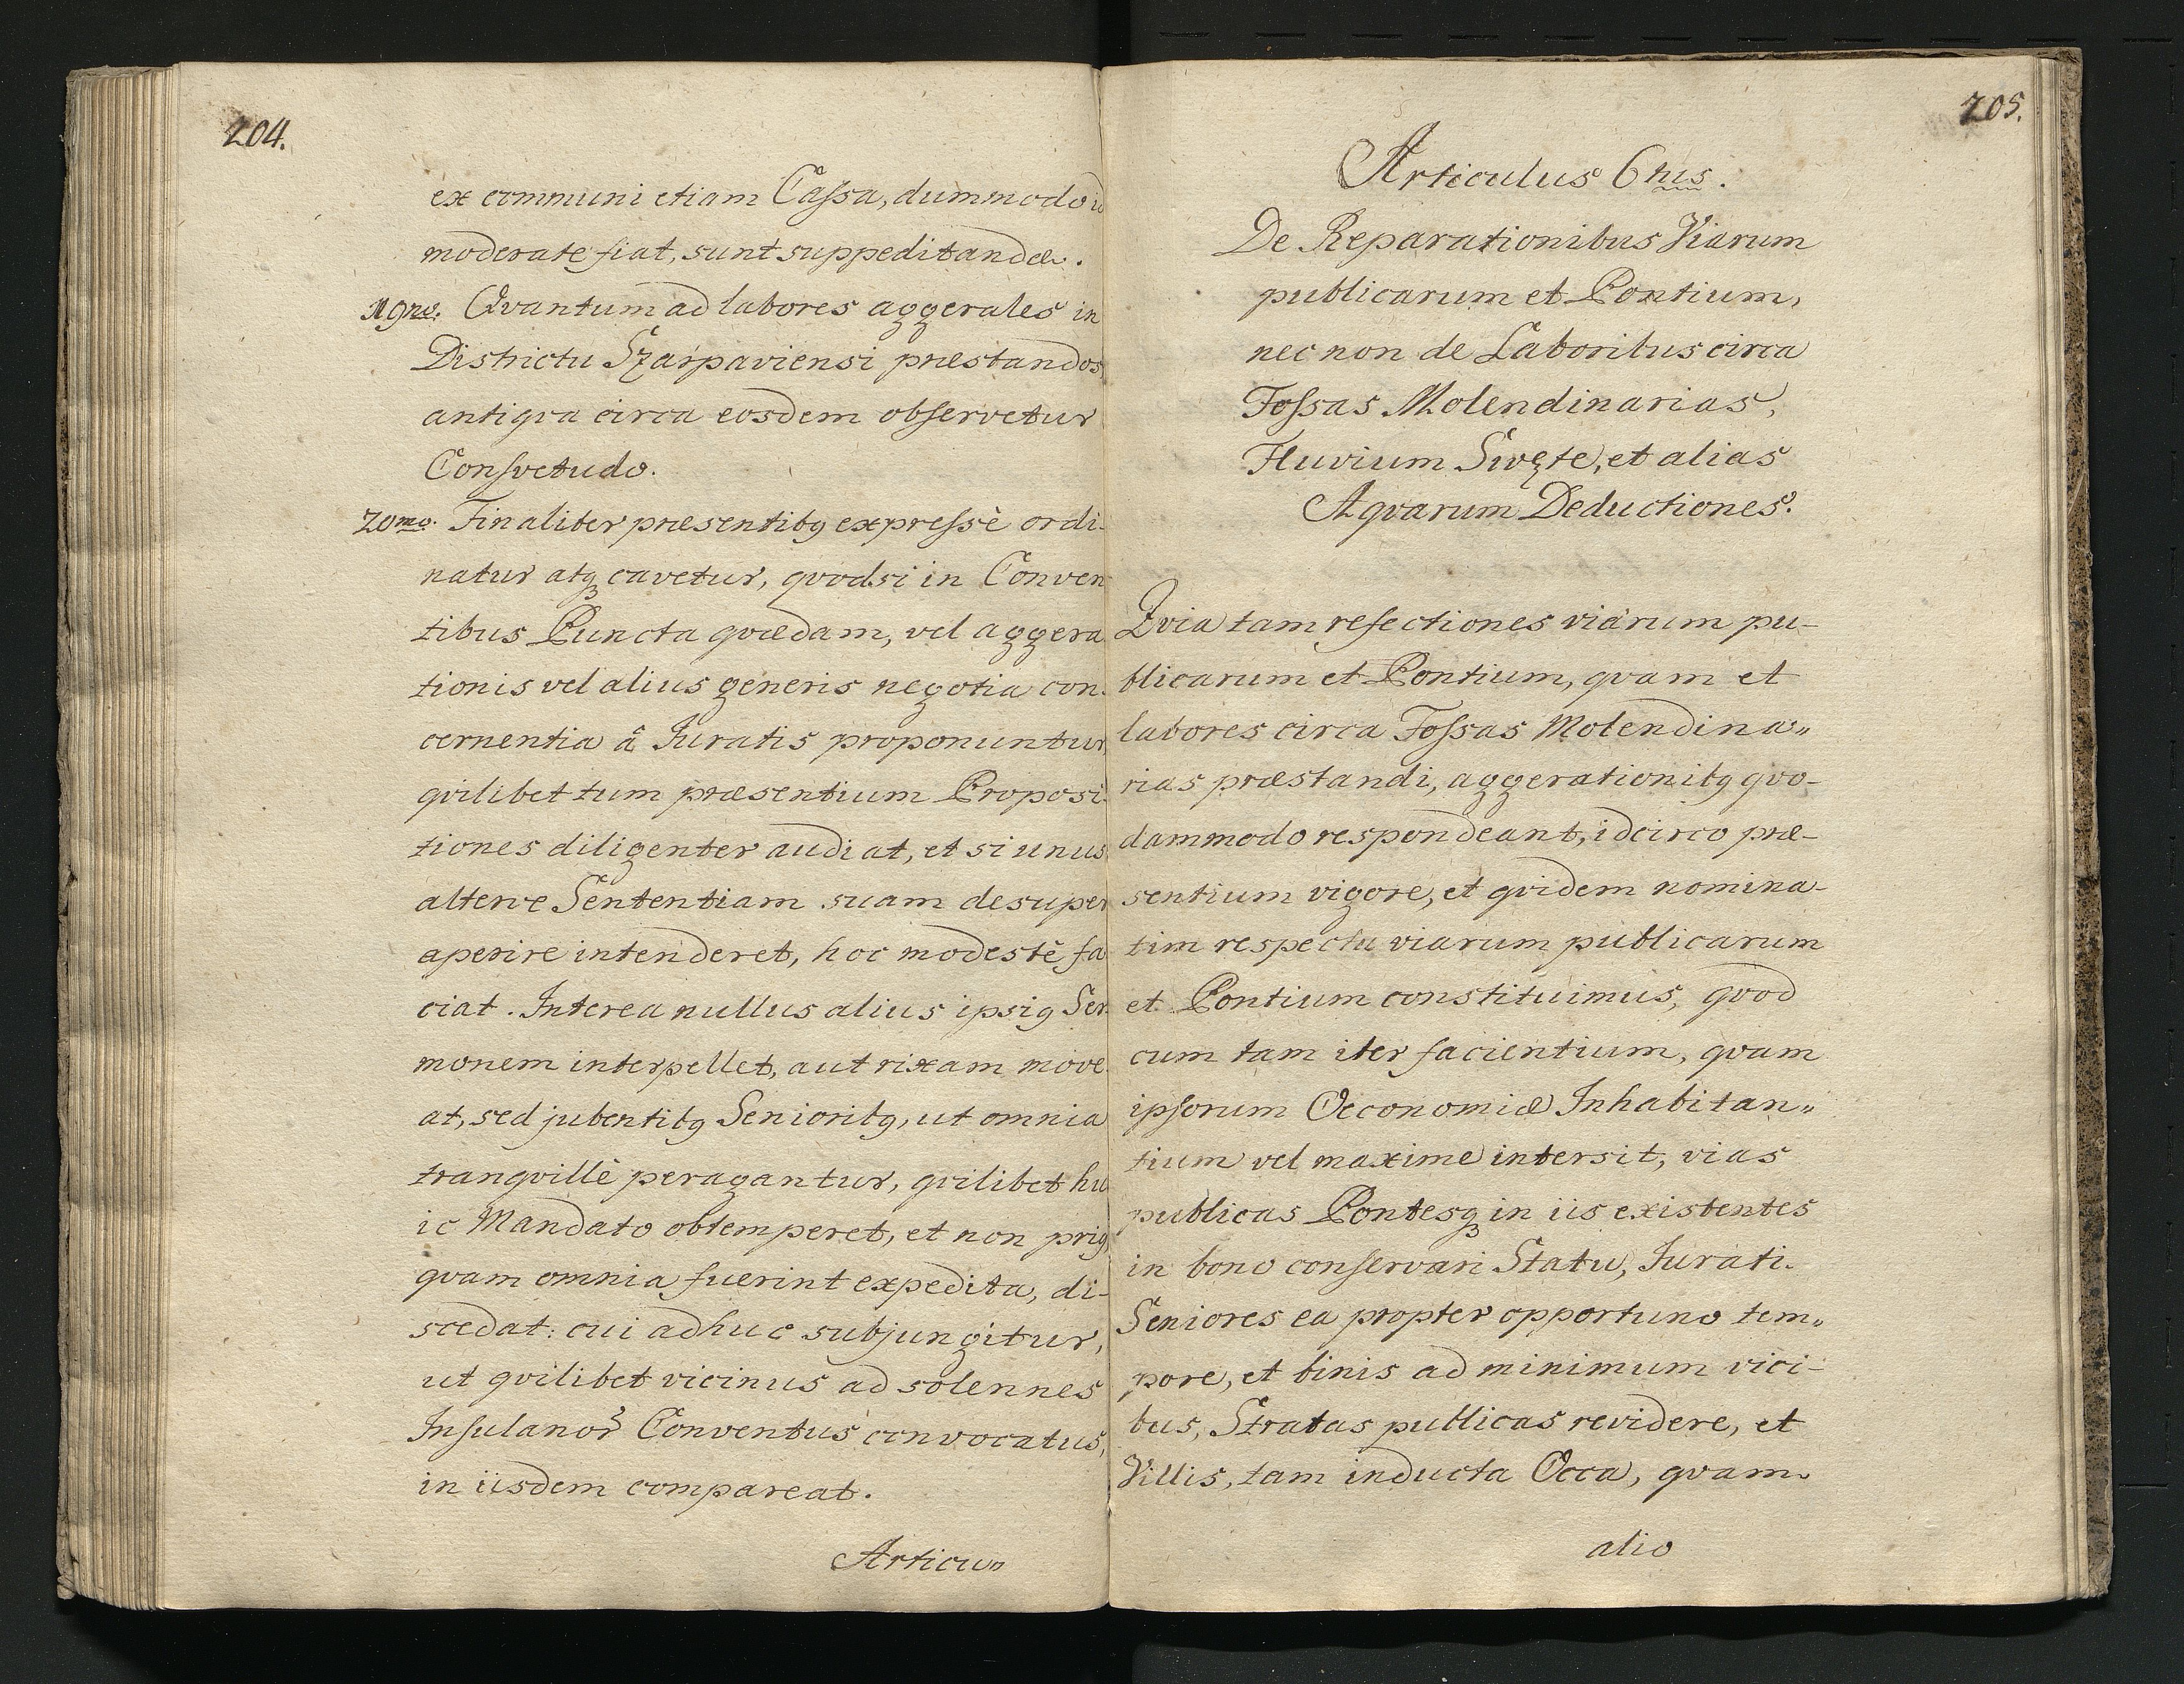 204.
ex communi etiam Caſsa, dummodo id
moderate fiat, sunt suppeditandæ.
19no. Qvantum ad labores aggerales in
Districtu Szarpaviensi præstandos,
antiqva circa eosdem obſervetur
Conſvetudo.
20mo. Finaliter præsentibq expreſsè ordi-
natur atq cavetur, qvodsi in Conven
tibus Puncta qvædam, vel aggera
tionis vel alius generis negotia con-
cernentia â Juratis proponuntur,
qvilibet tum præsentium Proposi-
tiones diligenter audiat, et si unus
alterve Sententiam suam desuper
aperire intenderet, hoc modestè fa
ciat. Interea nullus alius ipsiq Ser-
monem interpellet, aut rixam move-
at, sed jubentibq Senioribq, ut omnia
tranqvillè peragantur, qvilibet hu
ic Mandato obtemperet, et non priq
qvam omnia fuerint expedita, di-
scedat: cui adhuc subjungitur,
ut qvilibet vicinus ad solennes
Inſulanoꝝ Conventus convocatus,
in iisdem compareat.
Articu„
205.
Articulus 6tus.
De Reparationibus Viarum
publicarum et Pontium,
nec non de Laboribus circa
Foſsas Molendinarias,
Fluvium Swęte, et alias
Aqvarum Deductiones.
Qvia tam refectiones viarum pu-
blicarum et Pontium, qvam et
labores circa Foſsas Molendina„
rias præstandi, aggerationibq qvo-
dammodo respondeant, idcirco præ-
sentium vigore, et qvidem nomina-
tim respectu viarum publicarum
et Pontium constituimus, qvod
cum tam iter facientium, qvam
ipſorum Oeconomiæ Inhabitan„
tium vel maxime intersit, vias
publicas Pontesq in iis existentes
in bono conſervari Statu, Jurati
Seniores ea propter opportuno tem„
pore, et binis ad minimum vici-
bus, Stratas publicas revidere, et
Villis, tam inducta Occa, qvam
alio